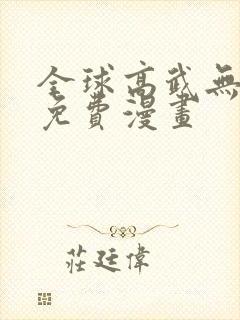 全球高武無
免費漫畫
莊廷偉